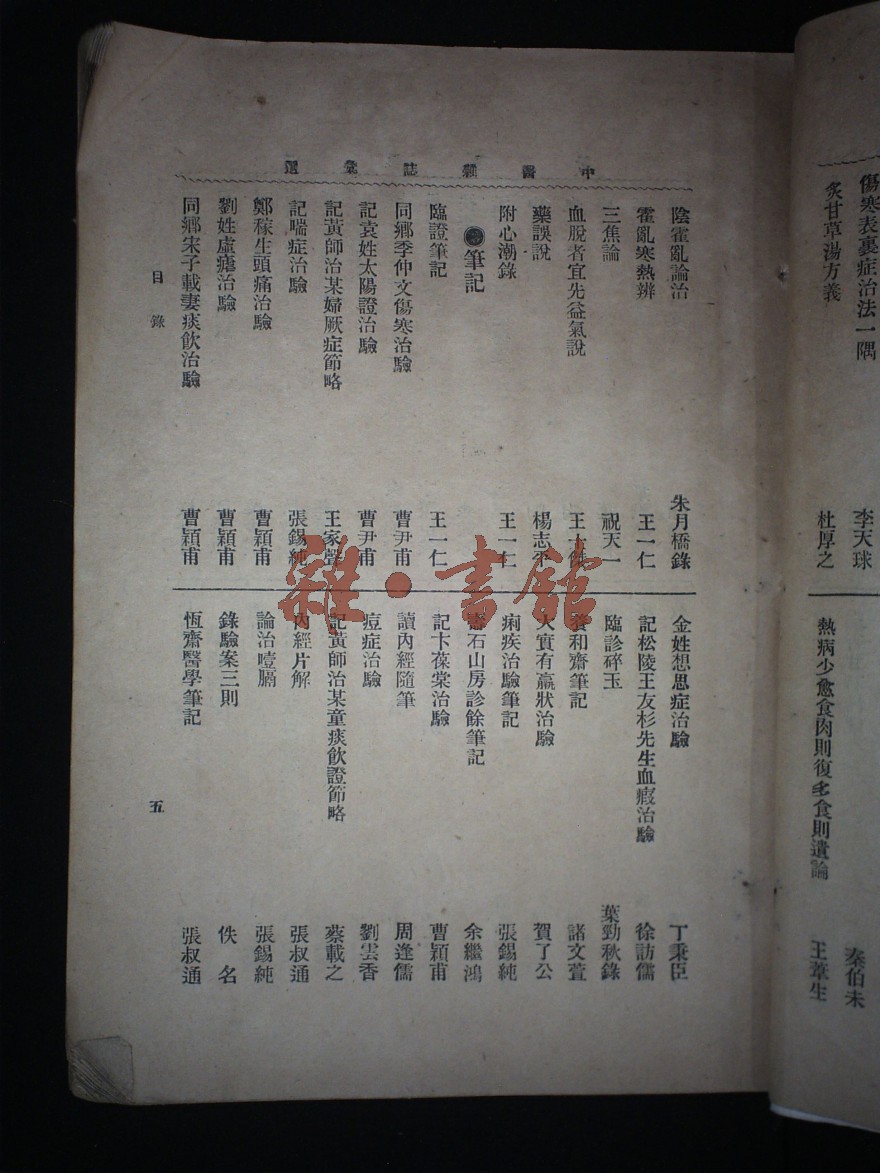 傷寒表裏症治法一隅 李天球
炙甘草湯方義 杜厚之
秦伯未
熱病少愈食肉則復多食則遺論 王葦生
中醫雜誌彙選
陰霍亂論治 朱月橋錄
霍亂寒熱辨 王一仁
三焦論 祝天一
血脫者宜先益氣說
藥誤說 楊志平
附心潮錄 王一仁
筆記
臨證筆記 王一仁
同鄉季仲文傷寒治驗 曹尹甫
記袁姓太陽證治驗 曹尹甫
記黃師治某婦厥症節略 王家聲
記喘症治驗 張錫純
鄭稼生頭痛治驗 曹穎甫
劉姓虛瘧治驗 曹穎甫
同鄉宋子載妻痰飲治驗 曹穎甫
金姓想思症治驗 丁秉臣
記松陵王友杉先生血瘕治驗 徐訪儒
臨診碎玉 葉勁秋錄
養和齋筆記 諸文萱
大實有羸狀治驗 賀了公
痢疾治驗筆記 張錫純
石山房診餘筆記 余繼鴻
記卞葆棠治驗 曹穎甫
讀內經隨筆 周逢儒
痘症治驗 劉雲香
記黃師治某童痰飲證節略 蔡載之
內經片解 張叔通
論治噎膈 張錫純
錄驗案三則 佚名
恆齋醫學筆記 張叔通
目錄
五
雜·書館